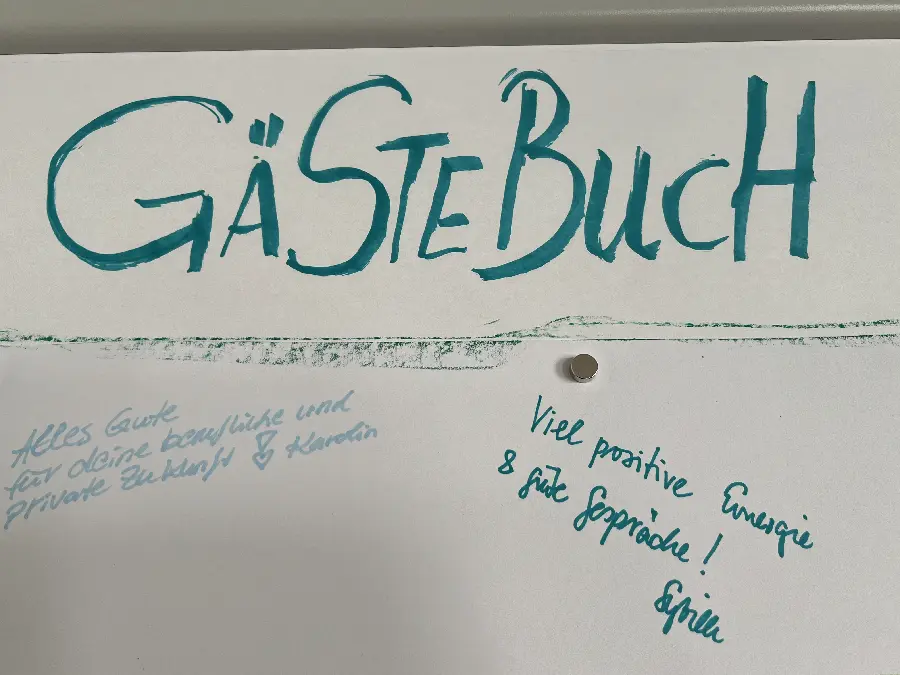 GÄSTEBUCH
Alles Gute
für deine berufliche und
private Zukunft ♡ Karolin
Viel positive Energie
& gute Gespräche!
Sybille